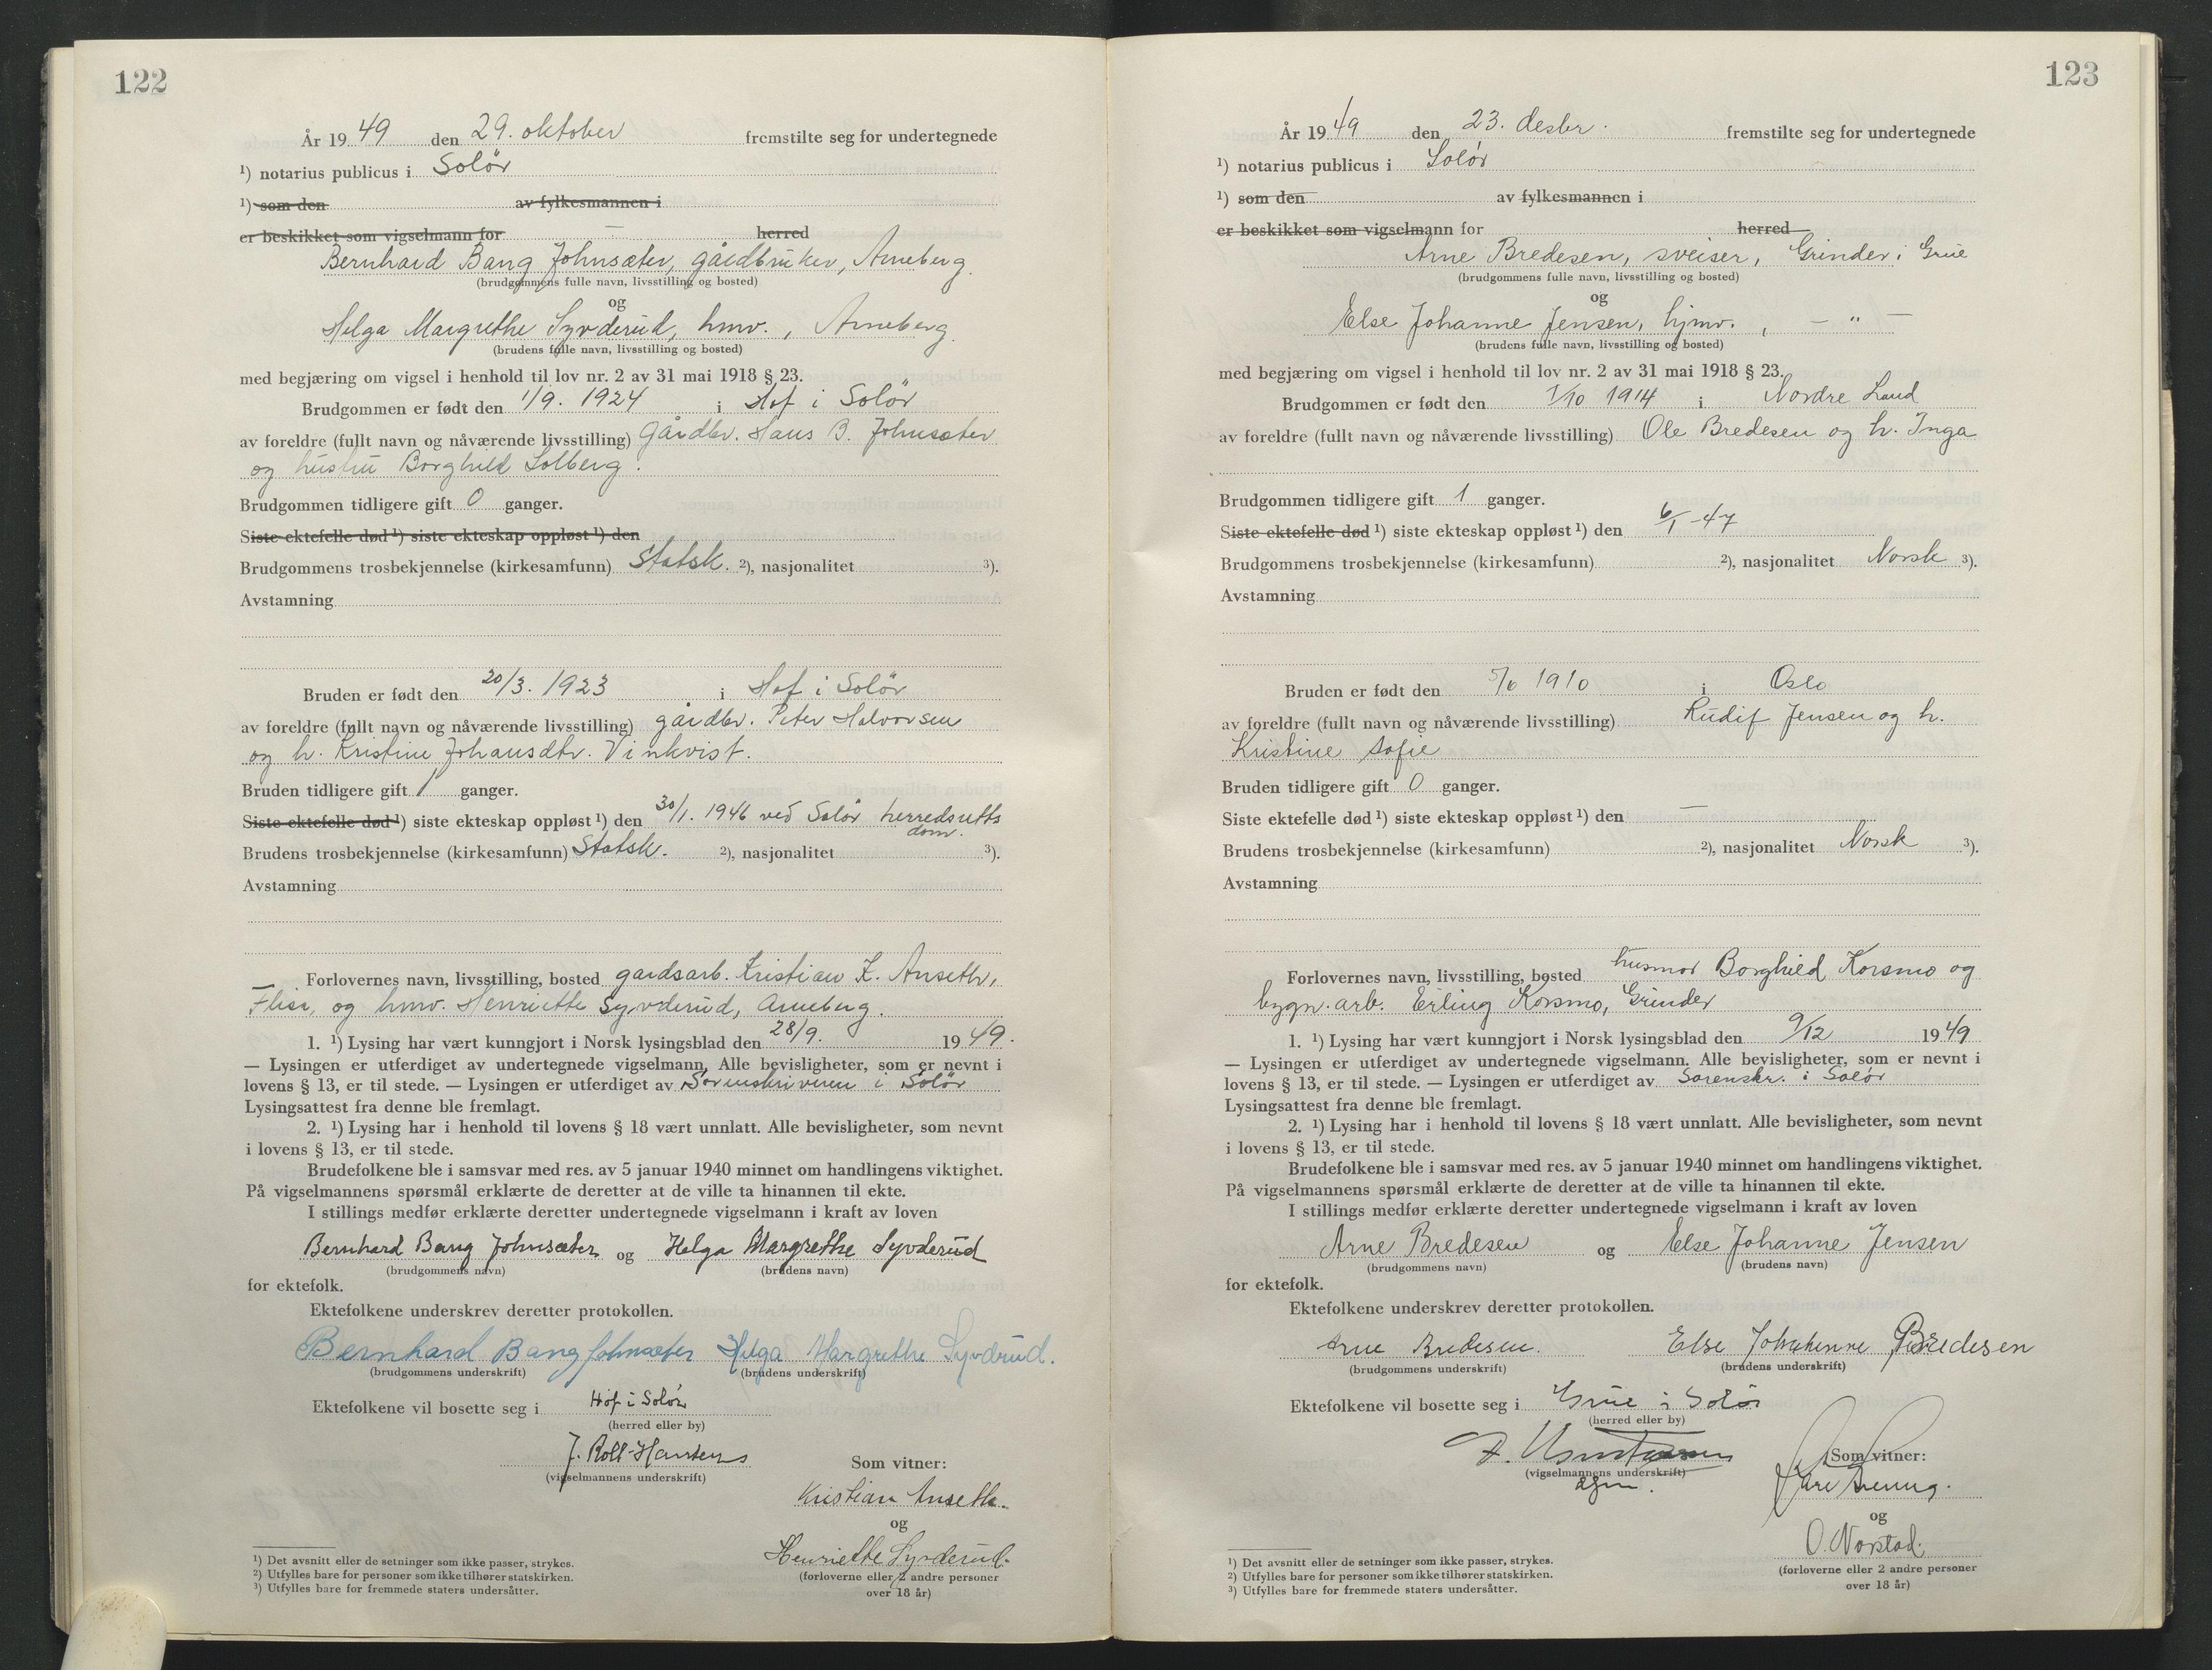 122
År 1949 den 29. oktober fremstilte seg for undertegnede
¹) notarius publicus i Solör
¹) som den av fylkesmannen i
er beskikket som vigselmann for — herred
Bernhard Bang Johnsæter, gårdbruker, Arneberg.
(brudgommens fulle navn, livsstilling og bosted)
og
Helga Margrethe Syvderud, hmv., Arneberg.
(brudens fulle navn, livsstilling og bosted)
med begjæring om vigsel i henhold til lov nr. 2 av 31 mai 1918 § 23.
Brudgommen er født den 1/9. 1924 i Hof i Solör
av foreldre (fullt navn og nåværende livsstilling) Gårdbr. Hans B. Johnsæter
og hustru Borghild Solberg.
Brudgommen tidligere gift 0 ganger.
Siste ektefelle død ¹) siste ekteskap oppløst ¹) den
Brudgommens trosbekjennelse (kirkesamfunn) Statsk. ²), nasjonalitet ³).
Avstamning
Bruden er født den 20/3. 1923 i Hof i Solör
av foreldre (fullt navn og nåværende livsstilling) gårdbr. Peter Halvorsen
og h. Kristine Johansdtr. Vinkvist.
Bruden tidligere gift 1 ganger.
Siste ektefelle død ¹) siste ekteskap oppløst ¹) den 30/1. 1946 ved Solör herredsretts
dom.
Brudens trosbekjennelse (kirkesamfunn) Statsk. ²), nasjonalitet ³).
Avstamning
Forlovernes navn, livsstilling, bosted gardsarb. Kristian K. Anseth,
Flisa, og hmv. Henriette Syvderud, Arneberg.
1. ¹) Lysing har vært kunngjort i Norsk lysingsblad den 28/9. 1949.
— Lysingen er utferdiget av undertegnede vigselmann. Alle bevisligheter, som er nevnt i
lovens § 13, er til stede. — Lysingen er utferdiget av Sorenskriveren i Solör
Lysingsattest fra denne ble fremlagt.
2. ¹) Lysing har i henhold til lovens § 18 vært unnlatt. Alle bevisligheter, som nevnt
i lovens § 13, er til stede.
Brudefolkene ble i samsvar med res. av 5 januar 1940 minnet om handlingens viktighet.
På vigselmannens spørsmål erklærte de deretter at de ville ta hinannen til ekte.
I stillings medfør erklærte deretter undertegnede vigselmann i kraft av loven
Bernhard Bang Johnsæter og Helga Margrethe Syvderud
(brudgommens navn) (brudens navn)
for ektefolk.
Ektefolkene underskrev deretter protokollen.
Bernhard Bang Johnsæter Helga Margrethe Syvdrud.
(brudgommens underskrift) (brudens underskrift)
Ektefolkene vil bosette seg i Hof i Solör
(herred eller by)
J. Roll-Hansen
(vigselmannens underskrift)
Som vitner:
Kristian Anseth.
og
Henriette Syvderud.
(forloverne eller 2 andre personer
over 18 år)
¹) Det avsnitt eller de setninger som ikke passer, strykes.
²) Utfylles bare for personer som ikke tilhører statskirken.
³) Utfylles bare for fremmede staters undersåtter.
123
År 1949 den 23. desbr. fremstilte seg for undertegnede
¹) notarius publicus i Solór
¹) som den av fylkesmannen i
er beskikket som vigselmann for herred
Arne Bredesen, sveiser, Grinder i Grue
(brudgommens fulle navn, livsstilling og bosted)
og
Else Johanne Jensen, hjmv., — " —
(brudens fulle navn, livsstilling og bosted)
med begjæring om vigsel i henhold til lov nr. 2 av 31 mai 1918 § 23.
Brudgommen er født den 1/10 1914 i Nordre Land
av foreldre (fullt navn og nåværende livsstilling) Ole Bredesen og h. Inga
Brudgommen tidligere gift 1 ganger.
Siste ektefelle død ¹) siste ekteskap oppløst ¹) den 6/1-47
Brudgommens trosbekjennelse (kirkesamfunn) ²), nasjonalitet Norsk ³).
Avstamning
Bruden er født den 1910 i Oslo
av foreldre (fullt navn og nåværende livsstilling) Jensen og h.
Kristine Sofie
Bruden tidligere gift 0 ganger.
Siste ektefelle død ¹) siste ekteskap oppløst ¹) den —
Brudens trosbekjennelse (kirkesamfunn) ²), nasjonalitet Norsk ³).
Avstamning
Forlovernes navn, livsstilling, bosted husmor Borghild Korsmo og
bygn.arb. Erling Korsmo, Grinder
1. ¹) Lysing har vært kunngjort i Norsk lysingsblad den 9/12 1949
— Lysingen er utferdiget av undertegnede vigselmann. Alle bevisligheter, som er nevnt i
lovens § 13, er til stede. — Lysingen er utferdiget av Sorenskr. i Solór
Lysingsattest fra denne ble fremlagt.
2. ¹) Lysing har i henhold til lovens § 18 vært unnlatt. Alle bevisligheter, som nevnt
i lovens § 13, er til stede.
Brudefolkene ble i samsvar med res. av 5 januar 1940 minnet om handlingens viktighet.
På vigselmannens spørsmål erklærte de deretter at de ville ta hinannen til ekte.
I stillings medfør erklærte deretter undertegnede vigselmann i kraft av loven
Arne Bredesen og Else Johanne Jensen
(brudgommens navn) (brudens navn)
for ektefolk.
Ektefolkene underskrev deretter protokollen.
Arne Bredesen. Else Johanne Bredesen
(brudgommens underskrift) (brudens underskrift)
Ektefolkene vil bosette seg i Grue i Solór
(herred eller by)
(vigselmannens underskrift)
Som vitner:
og
O. Norstad.
(forloverne eller 2 andre personer
over 18 år)
¹) Det avsnitt eller de setninger som ikke passer, strykes.
²) Utfylles bare for personer som ikke tilhører statskirken.
³) Utfylles bare for fremmede staters undersåtter.